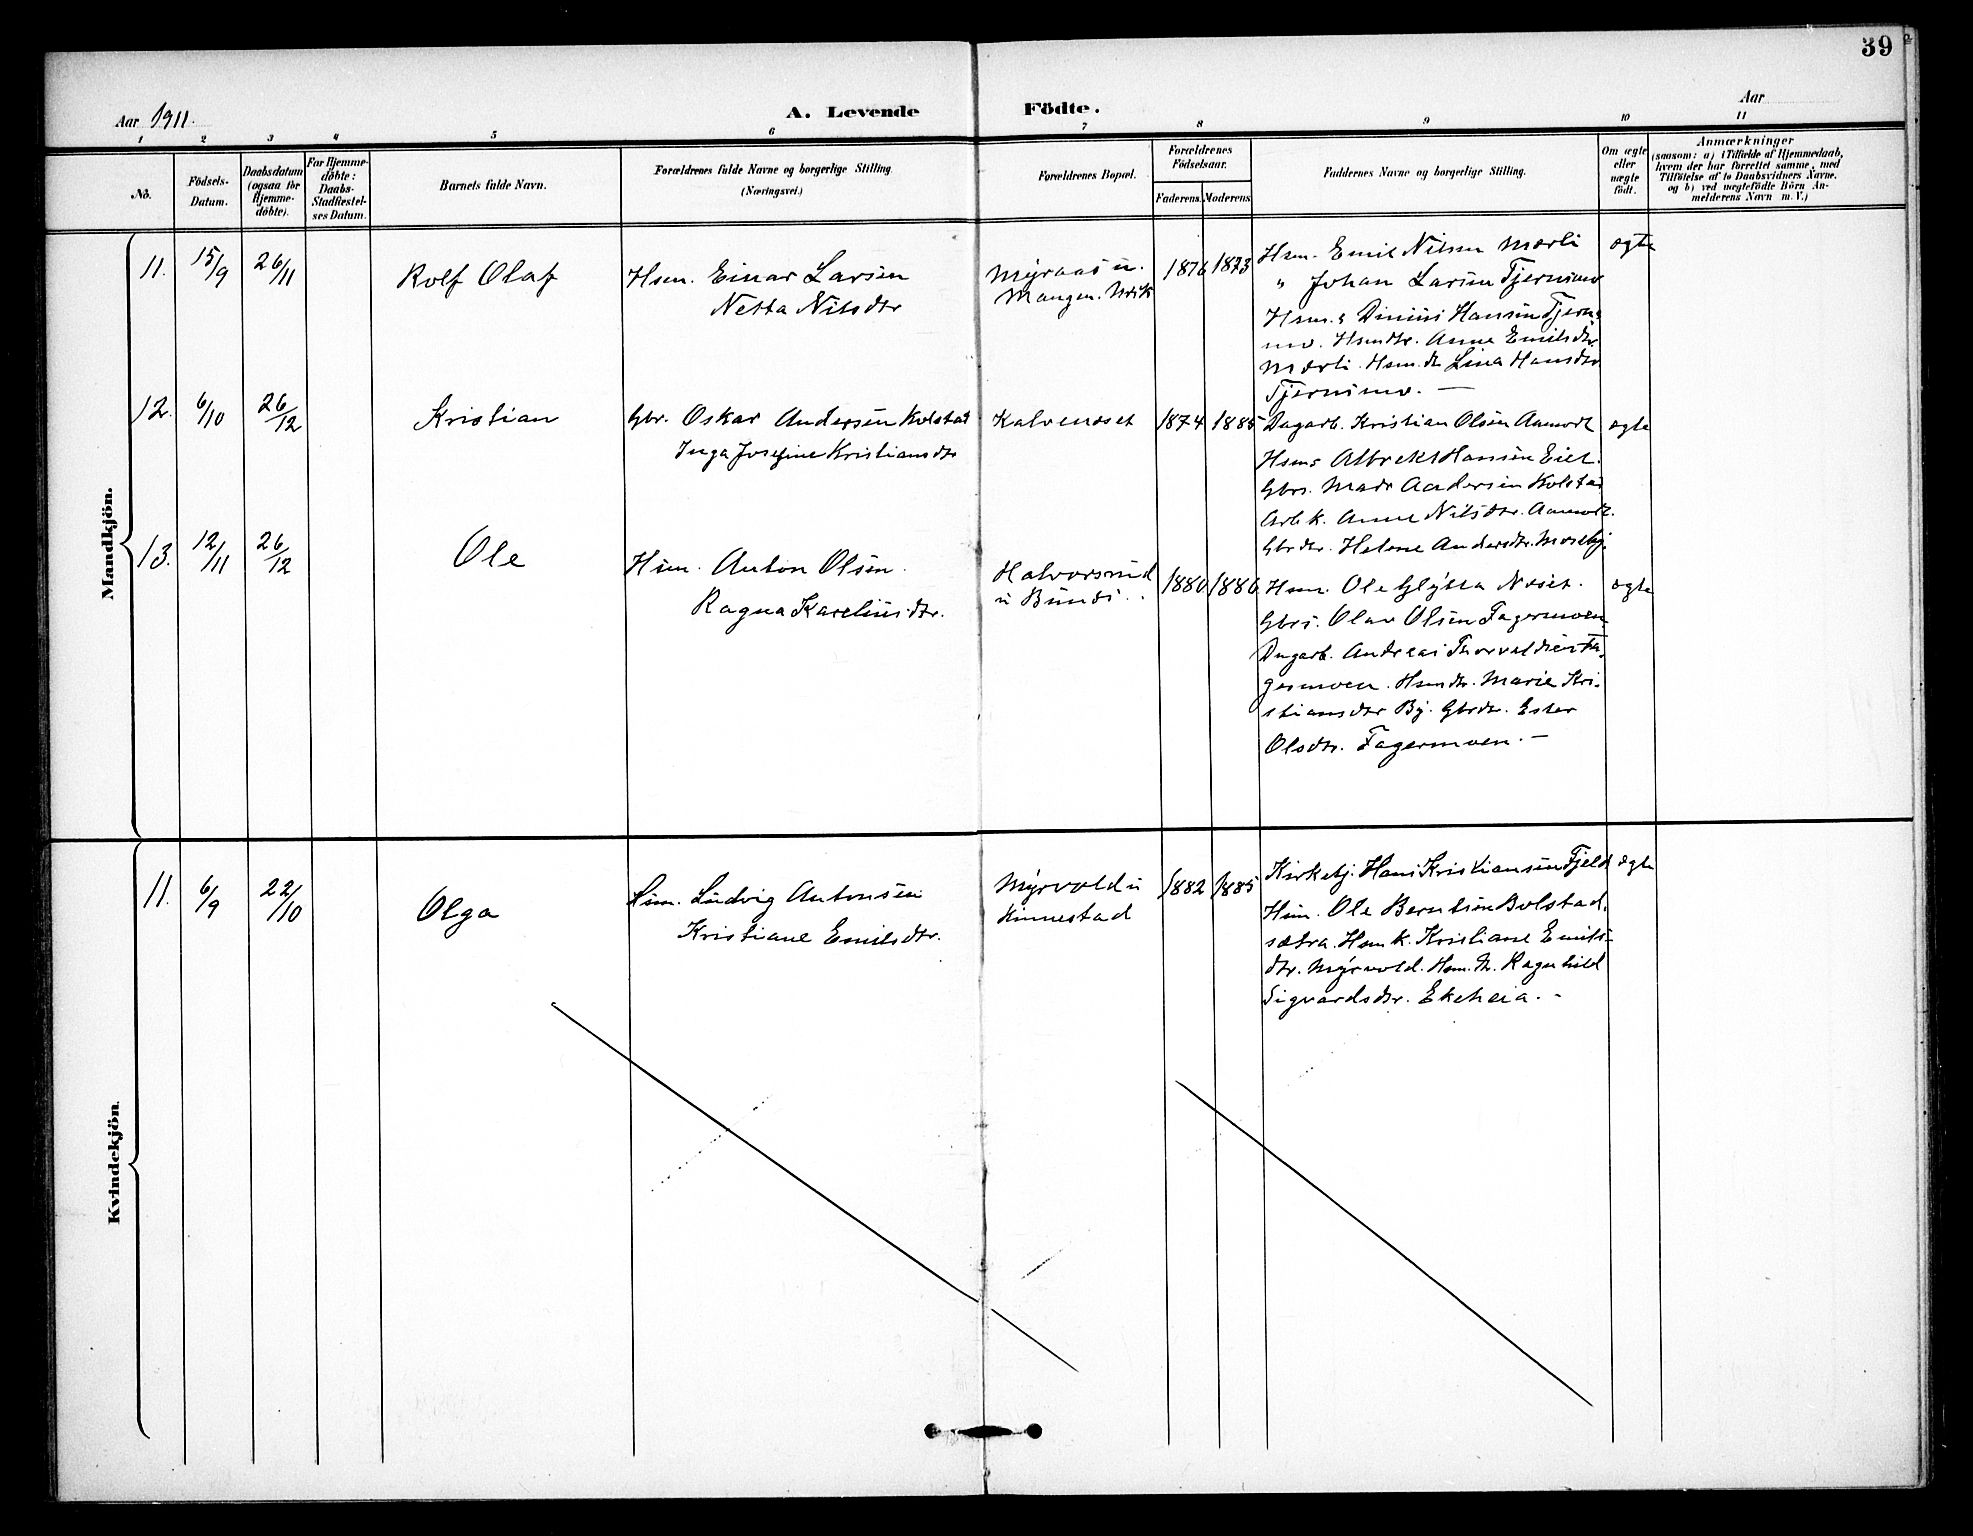 39
Aar 1911.
A. Levende Födte.
Aar
1 2 3 4 5 6 7 8 9 10 11
Nö.
Födsels-
Datum.
Daabsdatum
(ogsaa för
Hjemme-
döbte).
For Hjemme-
döbte:
Daabs-
Stadfæstel-
ses Datum.
Barnets fulde Navn.
Forældrenes fulde Navne og borgerlige Stilling
(Næringsvei.)
Forældrenes Bopæl.
Forældrenes
Födselsaar.
Faderens. Moderens
Faddernes Navne og borgerlige Stilling.
Om ægte
eller
uægte
födt.
Anmærkninger
(saasom: a) i Tilfælde af Hjemmedaab,
hvem der har forrettet samme, med
Tilföielse af to Daabsvidners Navne,
og b) ved uægtefödte Börn An-
melderens Navn m. V.)
Mandkjön.
11. 15/9 26/11
Rolf Olaf
Hsm. Einar Larsen
Netta Nilsdtr
Myraas u.
Mangen
1876 1873
Hsm. Emil Nilsen Mærli
" Johan Larsen Tjernsmo
Hsm.s Hansen Tjerns
mo. Hsmdtr. Anna Emilsdtr.
Mærli. Hsm.dtr Lina Hansdtr
Tjernsmo. —
ægte
12. 6/10 26/12
Kristian
Gbr. Oskar Andersen Kolstad
Inga Josefine Kristiansdtr
Kalvenæset
1874 1885
Dagarb. Kristian Olsen Aamodt
Hsms Albrekt Hansen Eiet.
Gbrs. Andersen Kolstad
Arb.k. Anne Nilsdtr. Aamodt.
Gbrdtr. Helene Andersdtr. Moseby.
ægte
13. 12/11 26/12
Ole
Hsm. Anton Olsen.
Ragna Kareliusdtr.
Halvorsrud
u Bunes.
1880 1886
Hsm. Ole Næset.
Gbrs. Olav Olsen Fagermoen.
Dagarb. Andreas Thorvaldsen Fa-
germoen. Hsmdtr. Marie Kri-
stiansdtr By. Gbrdtr. Ester
Olsdtr. Fagermoen. —
ægte
Kvindekjön.
11. 6/9 22/10
Olga
Hsm. Ludvig Antonsen
Kristiane Emilsdtr.
Myrvold u
Kinnestad
1882 1885
Kirkebj. Hans Kristiansen Fjeld
Hsm. Ole Berntsen Bolstad-
sætra. Hsm.k. Kristiane Emils-
dtr. Myrvold. Hsm.dtr. Ragnhild
Sigvardsdtr. Ekeheia. -
ægte